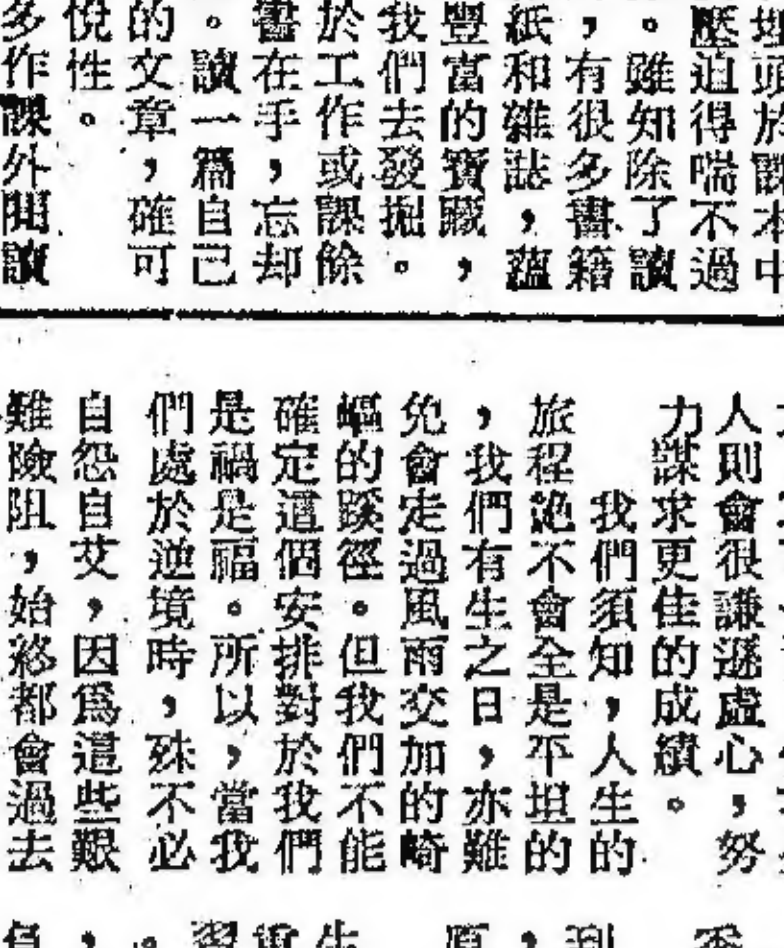 埋頭於課本中
壓迫得喘不過
。雖知除了讀
，有很多書籍
紙和雜誌，蘊
豐富的寶藏，
我們去發掘。
於工作或課餘
。書在手，忘却
讀一篇自己
的文章，確可
悅性。
多作課外閱讀
人則會很謙遜虛心，努
力謀求更佳的成績。
我們須知，人生的
旅程絕不會全是平坦的
，我們有生之日，亦難
免會走過風雨交加的崎
嶇的蹊徑。但我們不能
確定這個安排對於我們
是禍是福。所以，當我
們處於逆境時，殊不必
自怨自艾，因爲這些艱
難險阻，始終都會過去